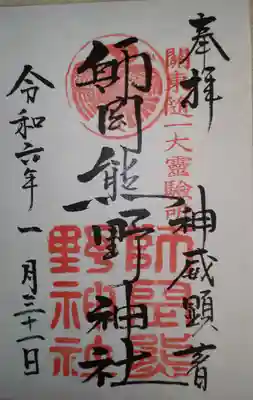 奉拝
關東随一大靈驗所
神威顕著
師岡熊野神社
師岡熊
野神社
令和六年一月三十一日